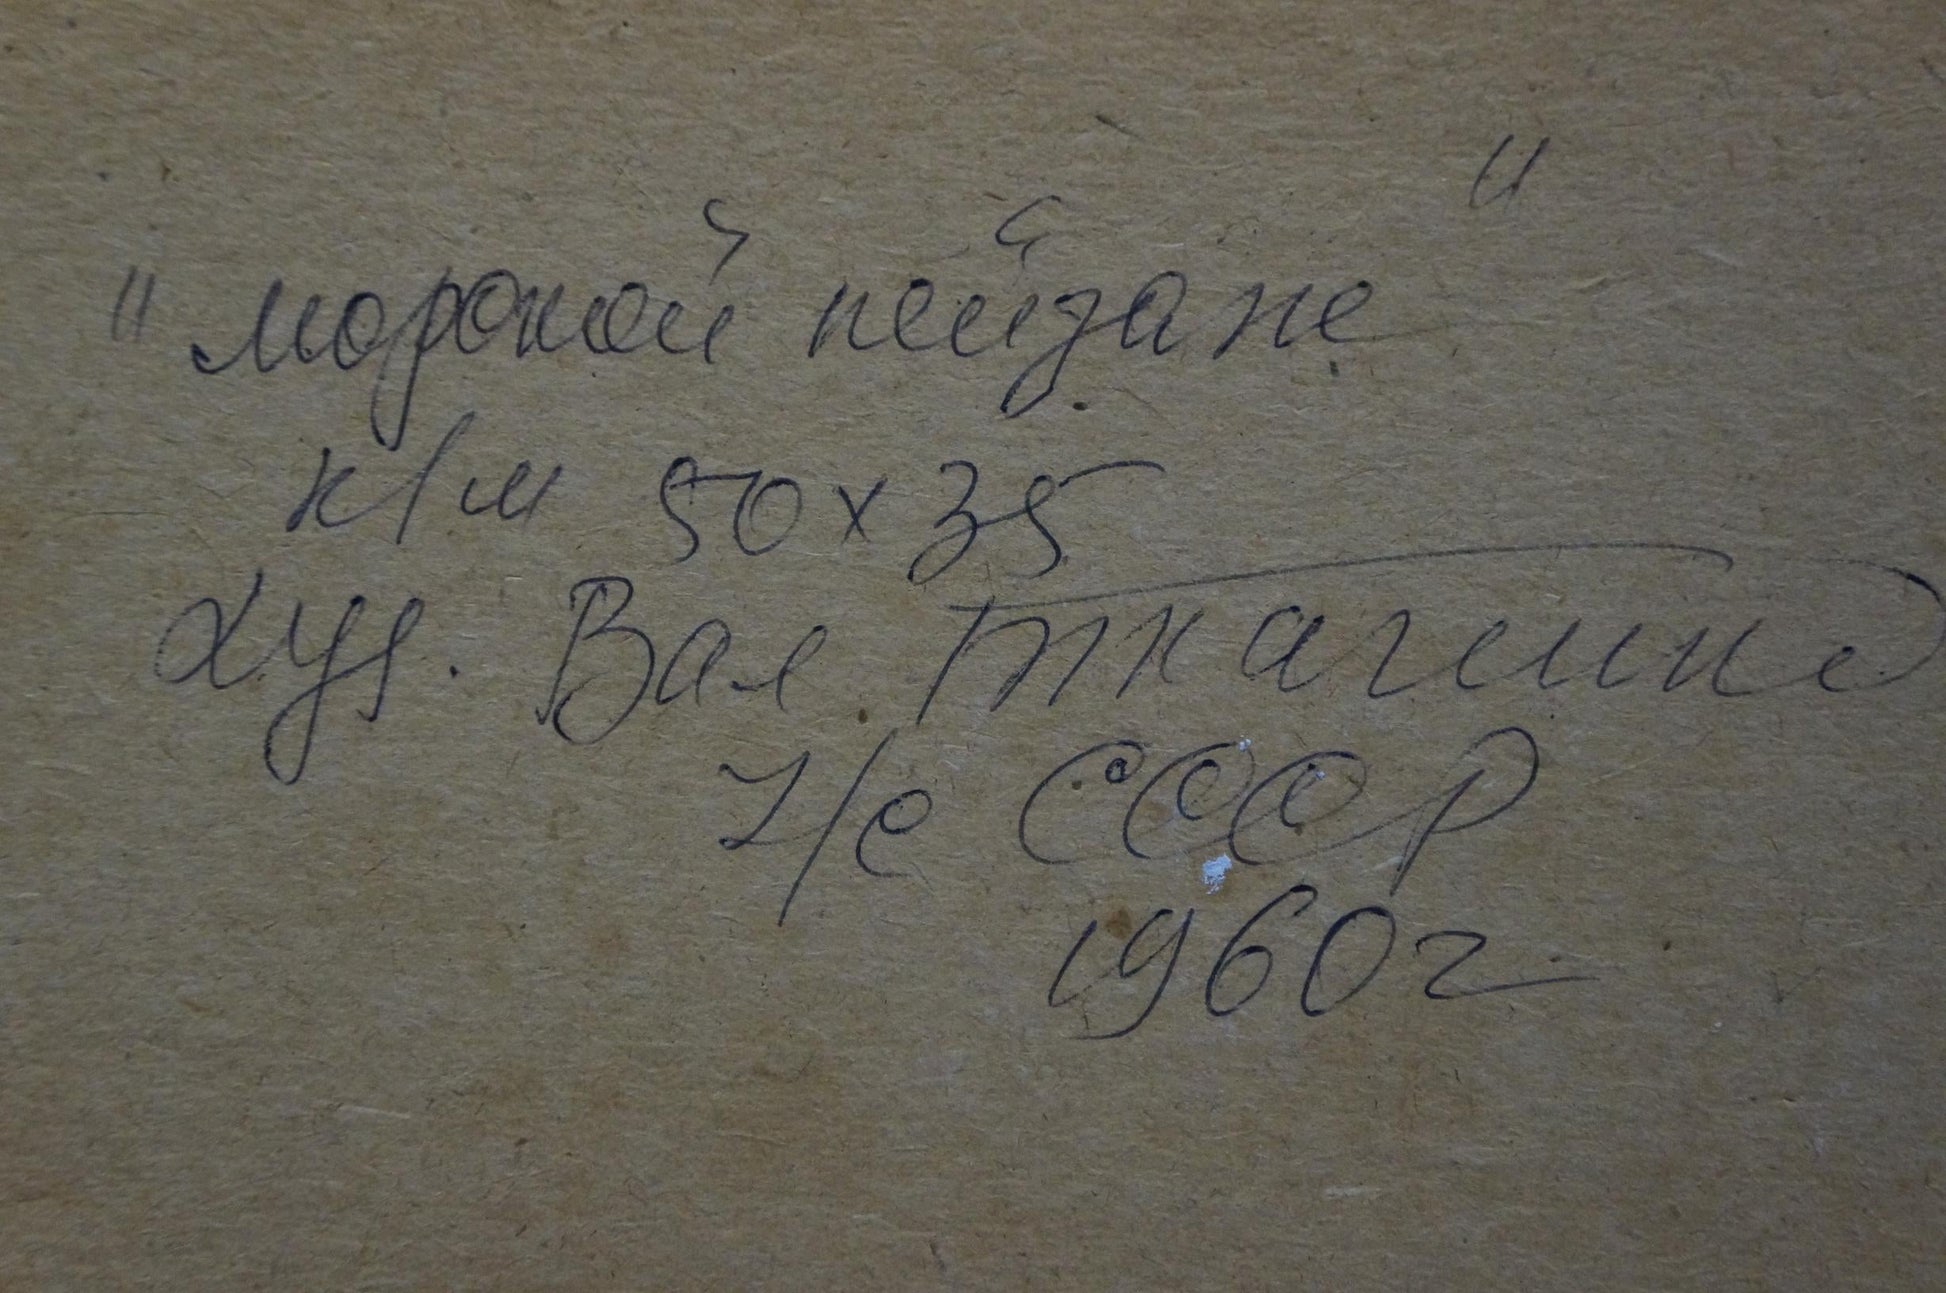 "Морской пейзаже"
к/м 50х35
худ. Вал Ткаченко
ч/с СССР
1960г